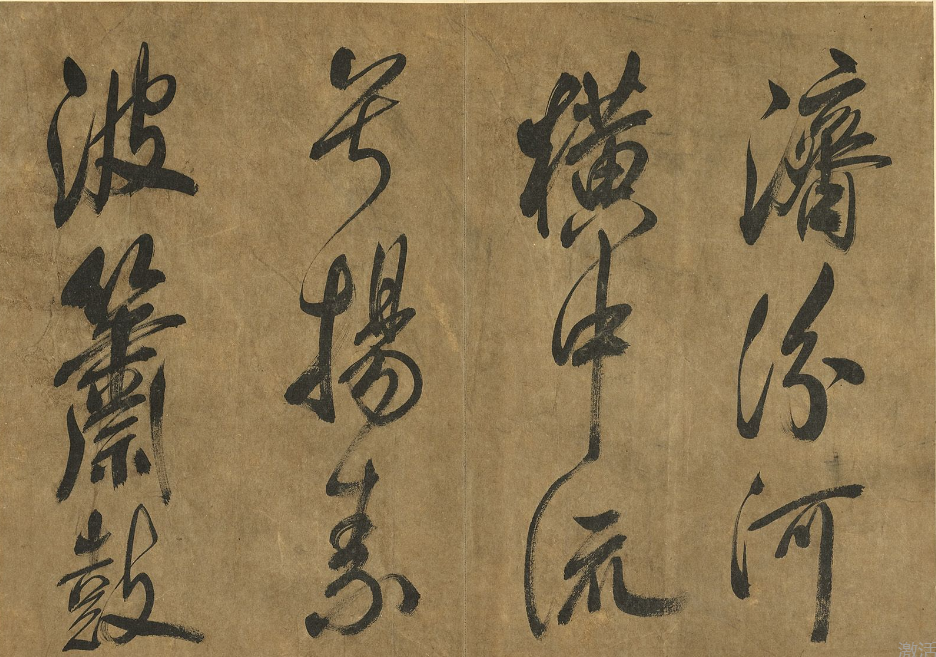 濟汾河
橫中流
兮揚素
波簫鼓
激活